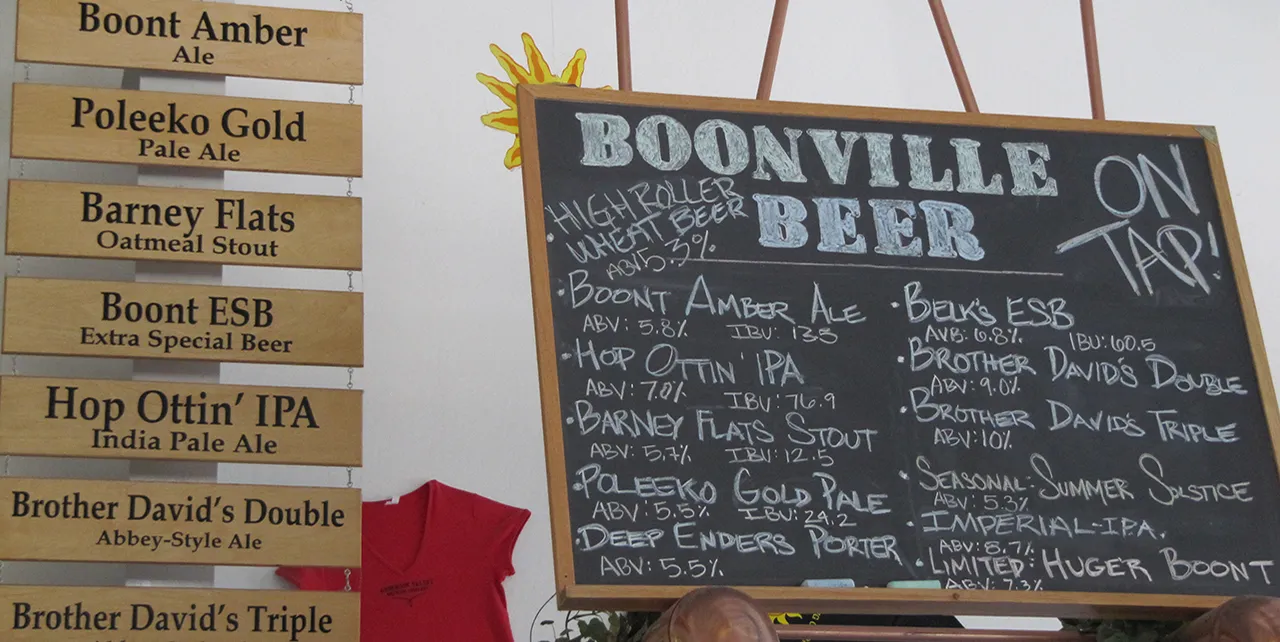 Boont Amber
Ale
Poleeko Gold
Pale Ale
Barney Flats
Oatmeal Stout
Boont ESB
Extra Special Beer
Hop Ottin' IPA
India Pale Ale
Brother David's Double
Abbey-Style Ale
Brother David's Triple
BOONVILLE
BEER
ON
TAP!
HIGH ROLLER
WHEAT BEER
ABV 5.3%
• BOONT AMBER ALE
ABV: 5.8% IBU: 13.5
• HOP OTTIN' IPA
ABV: 7.0% IBU: 76.9
• BARNEY FLATS STOUT
ABV: 5.7% IBU: 12.5
• POLEEKO GOLD PALE
ABV: 5.5% IBU: 24.2
• DEEP ENDERS PORTER
ABV: 5.5%
• BELK'S ESB
AVB: 6.8% IBU: 60.5
• BROTHER DAVID'S DOUBLE
ABV: 9.0%
• BROTHER DAVID'S TRIPLE
ABV: 10%
• SEASONAL: SUMMER SOLSTICE
ABV: 5.3%
• IMPERIAL-IPA.
ABV: 8.7%
• LIMITED: HUGER BOONT
ABV: 7.3%